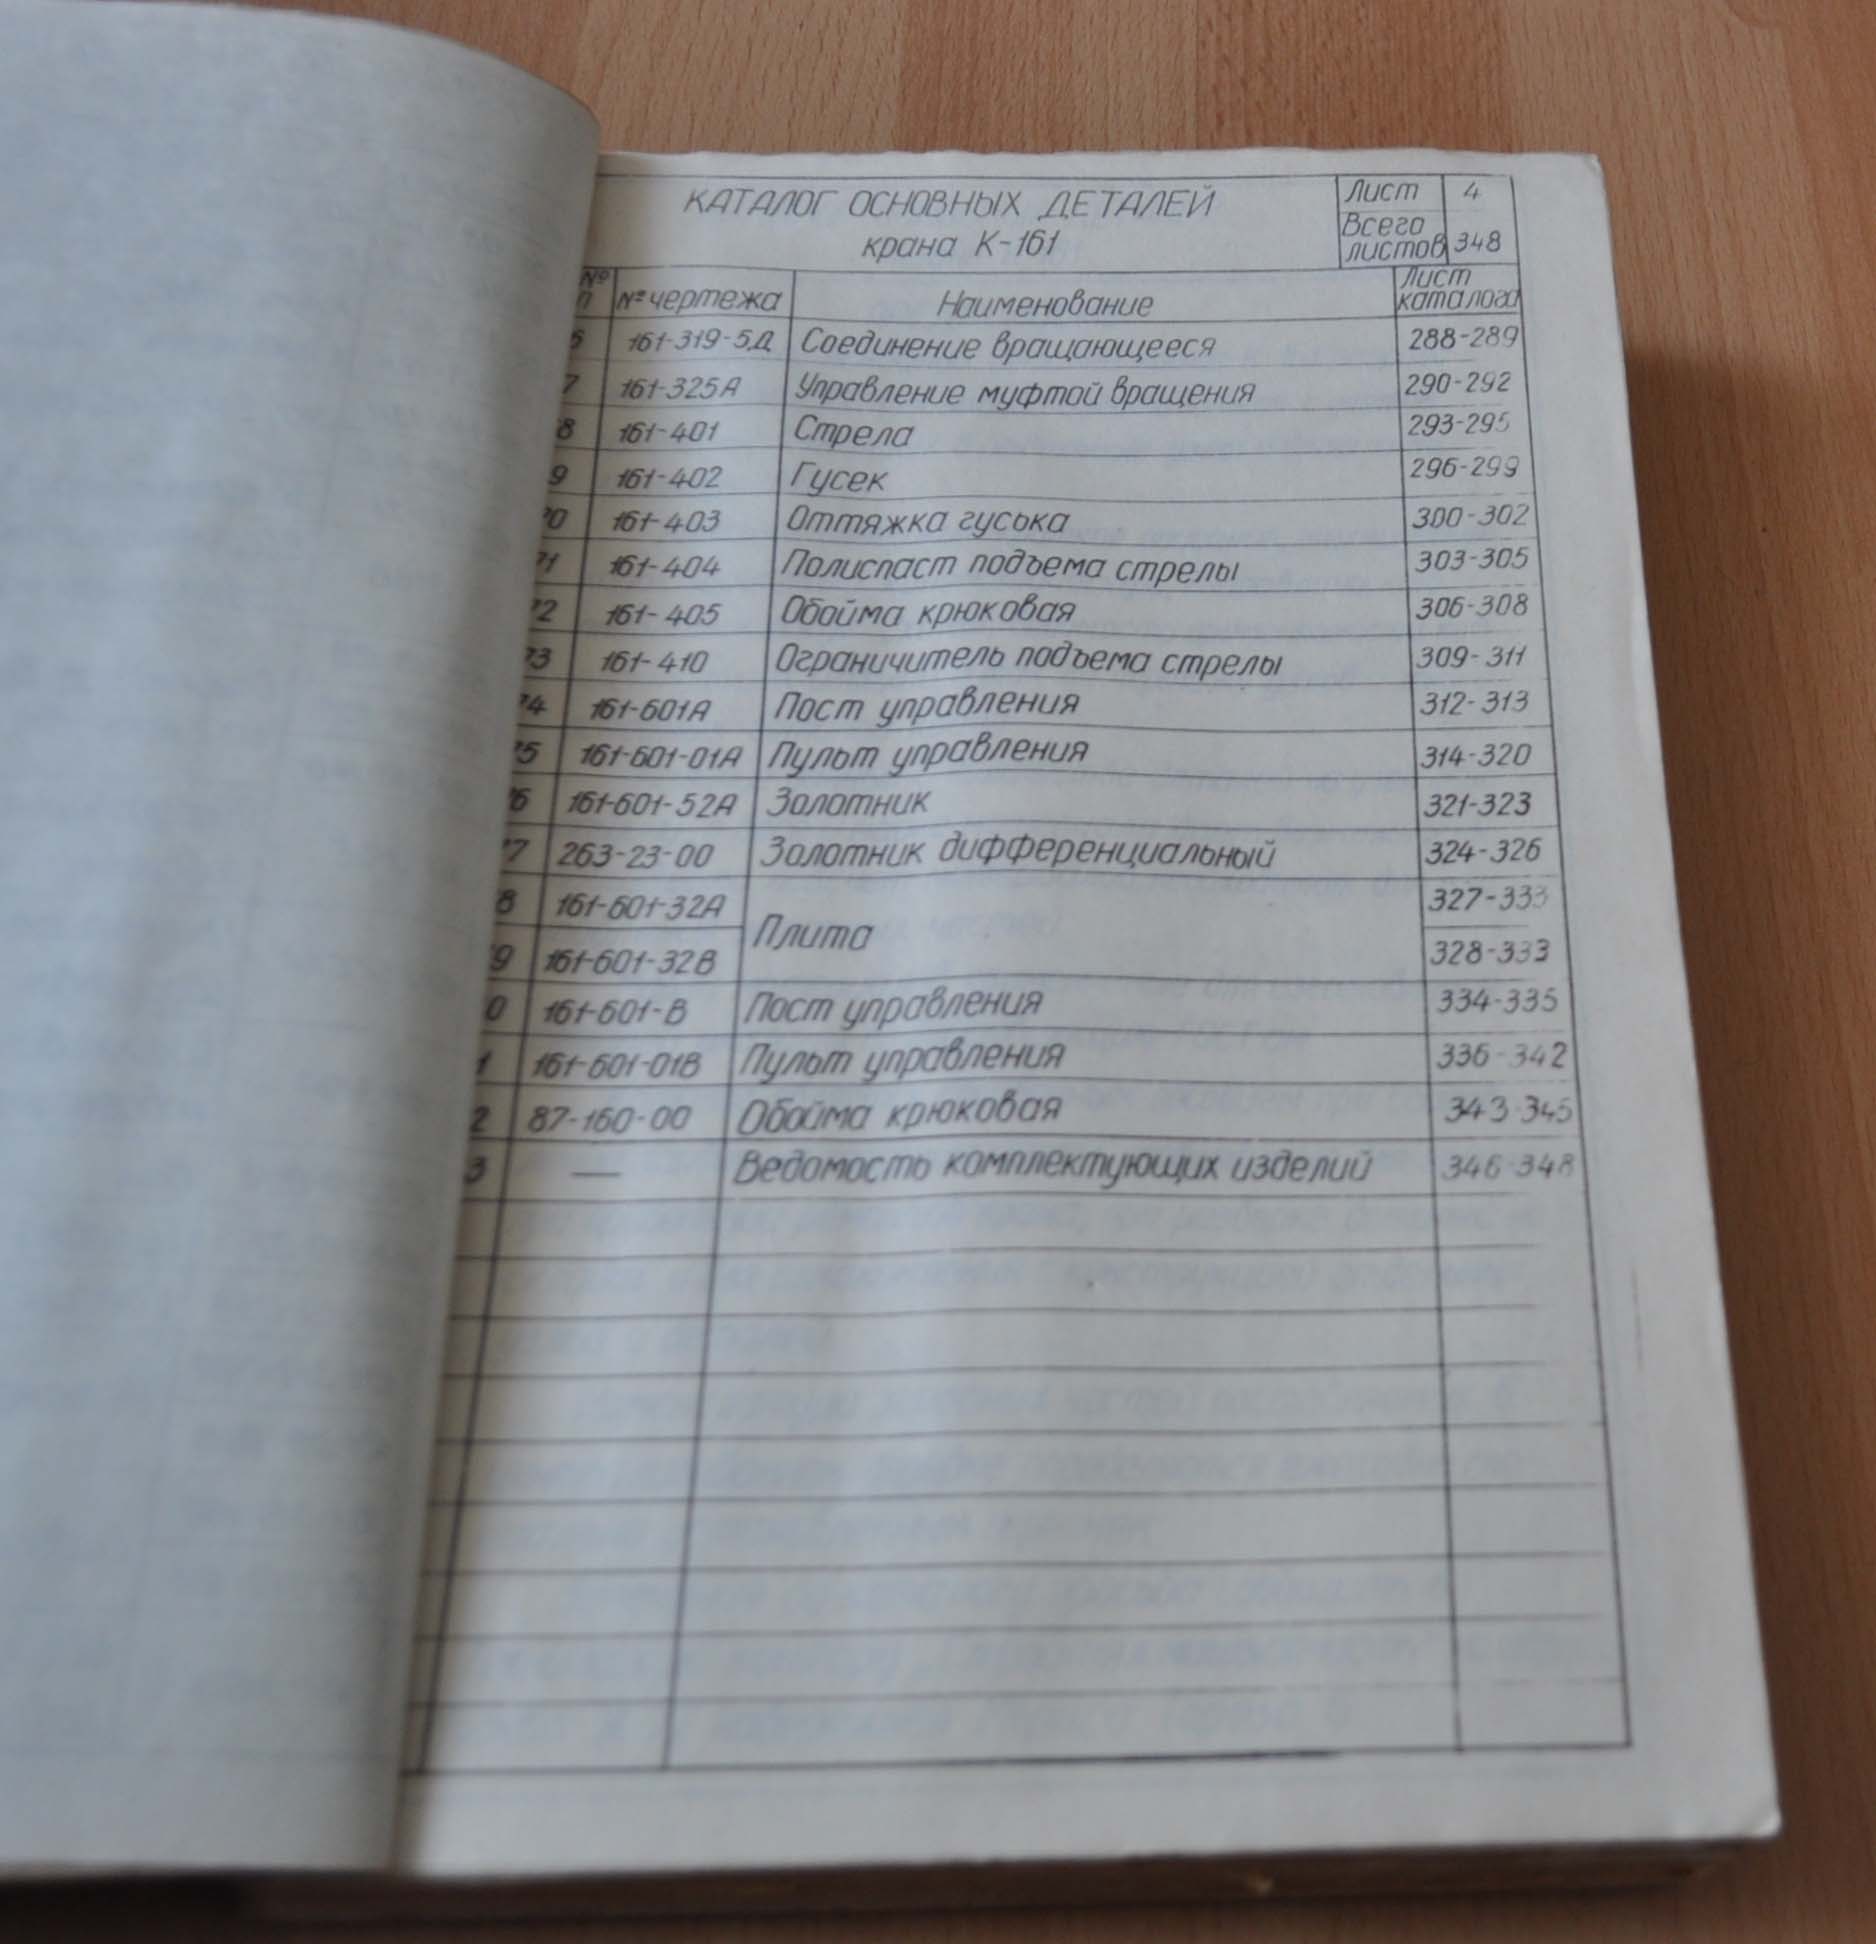 КАТАЛОГ ОСНОВНЫХ ДЕТАЛЕЙ
крана К-161
Лист 4
Всего листов 348
№ п № чертежа Наименование Лист каталога
6 161-319-5Д Соединение вращающееся 288-289
7 161-325А Управление муфтой вращения 290-292
8 161-401 Стрела 293-295
9 161-402 Гусек 296-299
70 161-403 Оттяжка гуська 300-302
71 161-404 Полиспаст подъема стрелы 303-305
72 161-405 Обойма крюковая 306-308
73 161-410 Ограничитель подъема стрелы 309-311
74 161-601А Пост управления 312-313
75 161-601-01А Пульт управления 314-320
76 161-601-52А Золотник 321-323
77 263-23-00 Золотник дифференциальный 324-326
8 161-601-32А Плита 327-333
79 161-601-32В 328-333
0 161-601-В Пост управления 334-335
1 161-601-01В Пульт управления 336-342
2 87-160-00 Обойма крюковая 343-345
3 — Ведомость комплектующих изделий 346-348